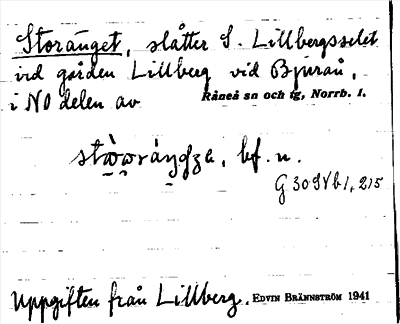 Storänget, slåtter S. Lillbergsselet
vid gården Lillberg vid Bjurån,
i NO delen av Råneå sn och tg, Norrb. l.
bf. n.
G 309Vb1, 215
Uppgiften från Lillberg. EDVIN BRÄNNSTRÖM 1941